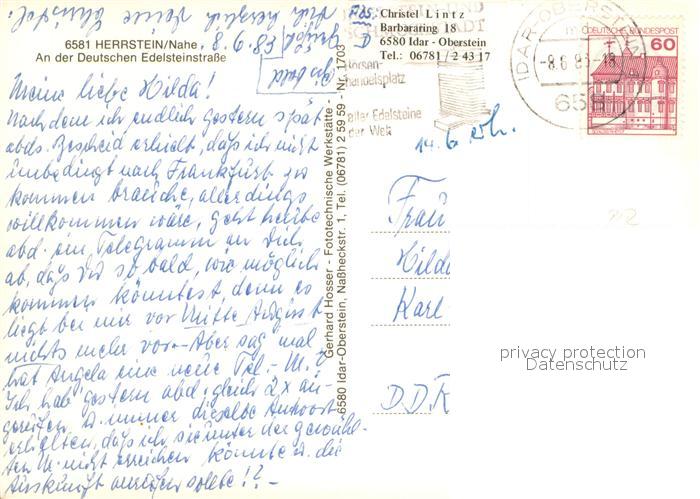 6581 HERRSTEIN/Nahe, 8.6.83
An der Deutschen Edelsteinstraße
Meine liebe Hilda!
Nachdem ich endlich gestern spät
abds. Bescheid erhielt, daß ich nicht
unbedingt nach Frankfurt zu
kommen brauche, allerdings
willkommen wäre, geht heute
abd. ein Telegramm an Dich
ab, daß Du so bald, wie möglich
kommen könntest, denn es
liegt bei mir vor Mitte August
nichts mehr vor. - Aber sag mal
hat Angela eine neue Tel.-Nr.?
Ich hab' gestern abd. gleich 2x an-
gerufen u. immer dieselbe Antwort
erhalten, daß ich sie unter der gewähl-
ten Nr. nicht erreichen könnte u. die
Auskunft anrufen sollte!? -
bald
Gerhard Hosser - Fototechnische Werkstätte -
6580 Idar-Oberstein, Naßheckstr. 1, Tel. (06781) 2 59 59 - Nr. 1703
Abs.:
Christel Lintz
Barbararing 18
D 6580 Idar-Oberstein
Tel.: 06781 / 2 43 17
UND
STADT
Börsen-
handelsplatz
aller Edelsteine
der Welt
IDAR-OBERSTEIN
658
DEUTSCHE BUNDESPOST
60
14.6.
Frau
Karl
privacy protection
Datenschutz